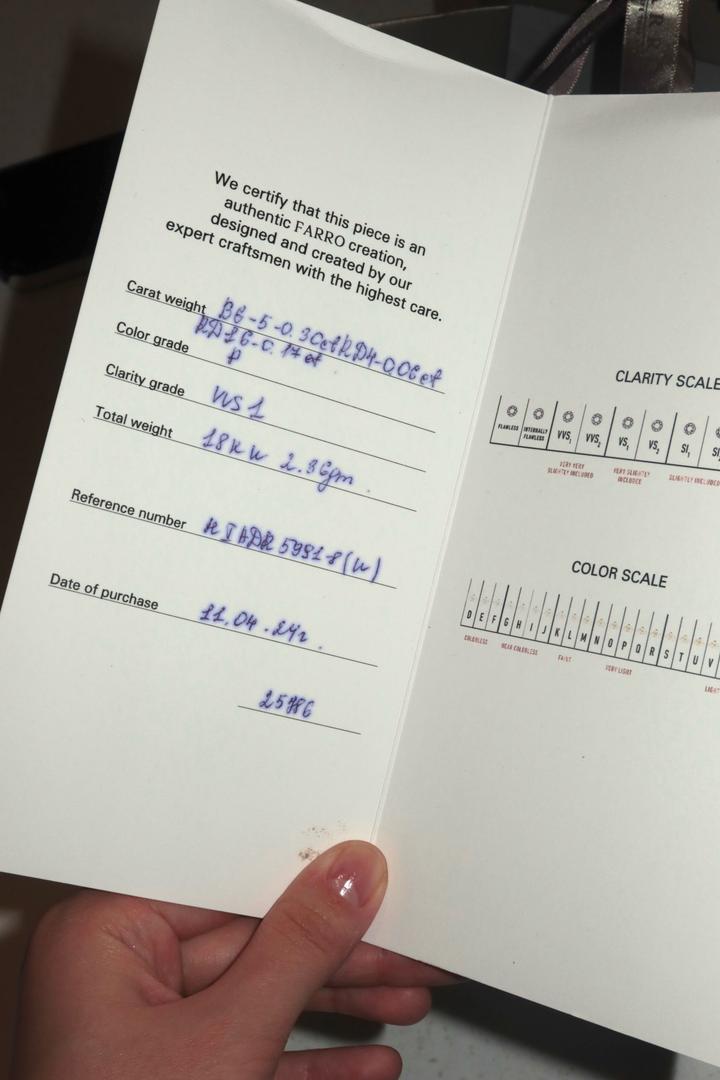 We certify that this piece is an
authentic FARRO creation,
designed and created by our
expert craftsmen with the highest care.
Carat weight BG-5-0.30ct RD4-0.06ct
RD16-0.17ct
Color grade F
Clarity grade VVS1
Total weight 18K W 2.36gm.
Reference number
Date of purchase 11.04.24г.
CLARITY SCALE
FLAWLESS INTERNALLY FLAWLESS VVS1 VVS2 VS1 VS2 SI1
VERY VERY SLIGHTLY INCLUDED VERY SLIGHTLY INCLUDED SLIGHTLY INCLUDED
COLOR SCALE
D E F G H I J K L M N O P Q R S T U V
COLORLESS NEAR COLORLESS FAINT VERY LIGHT LIGHT